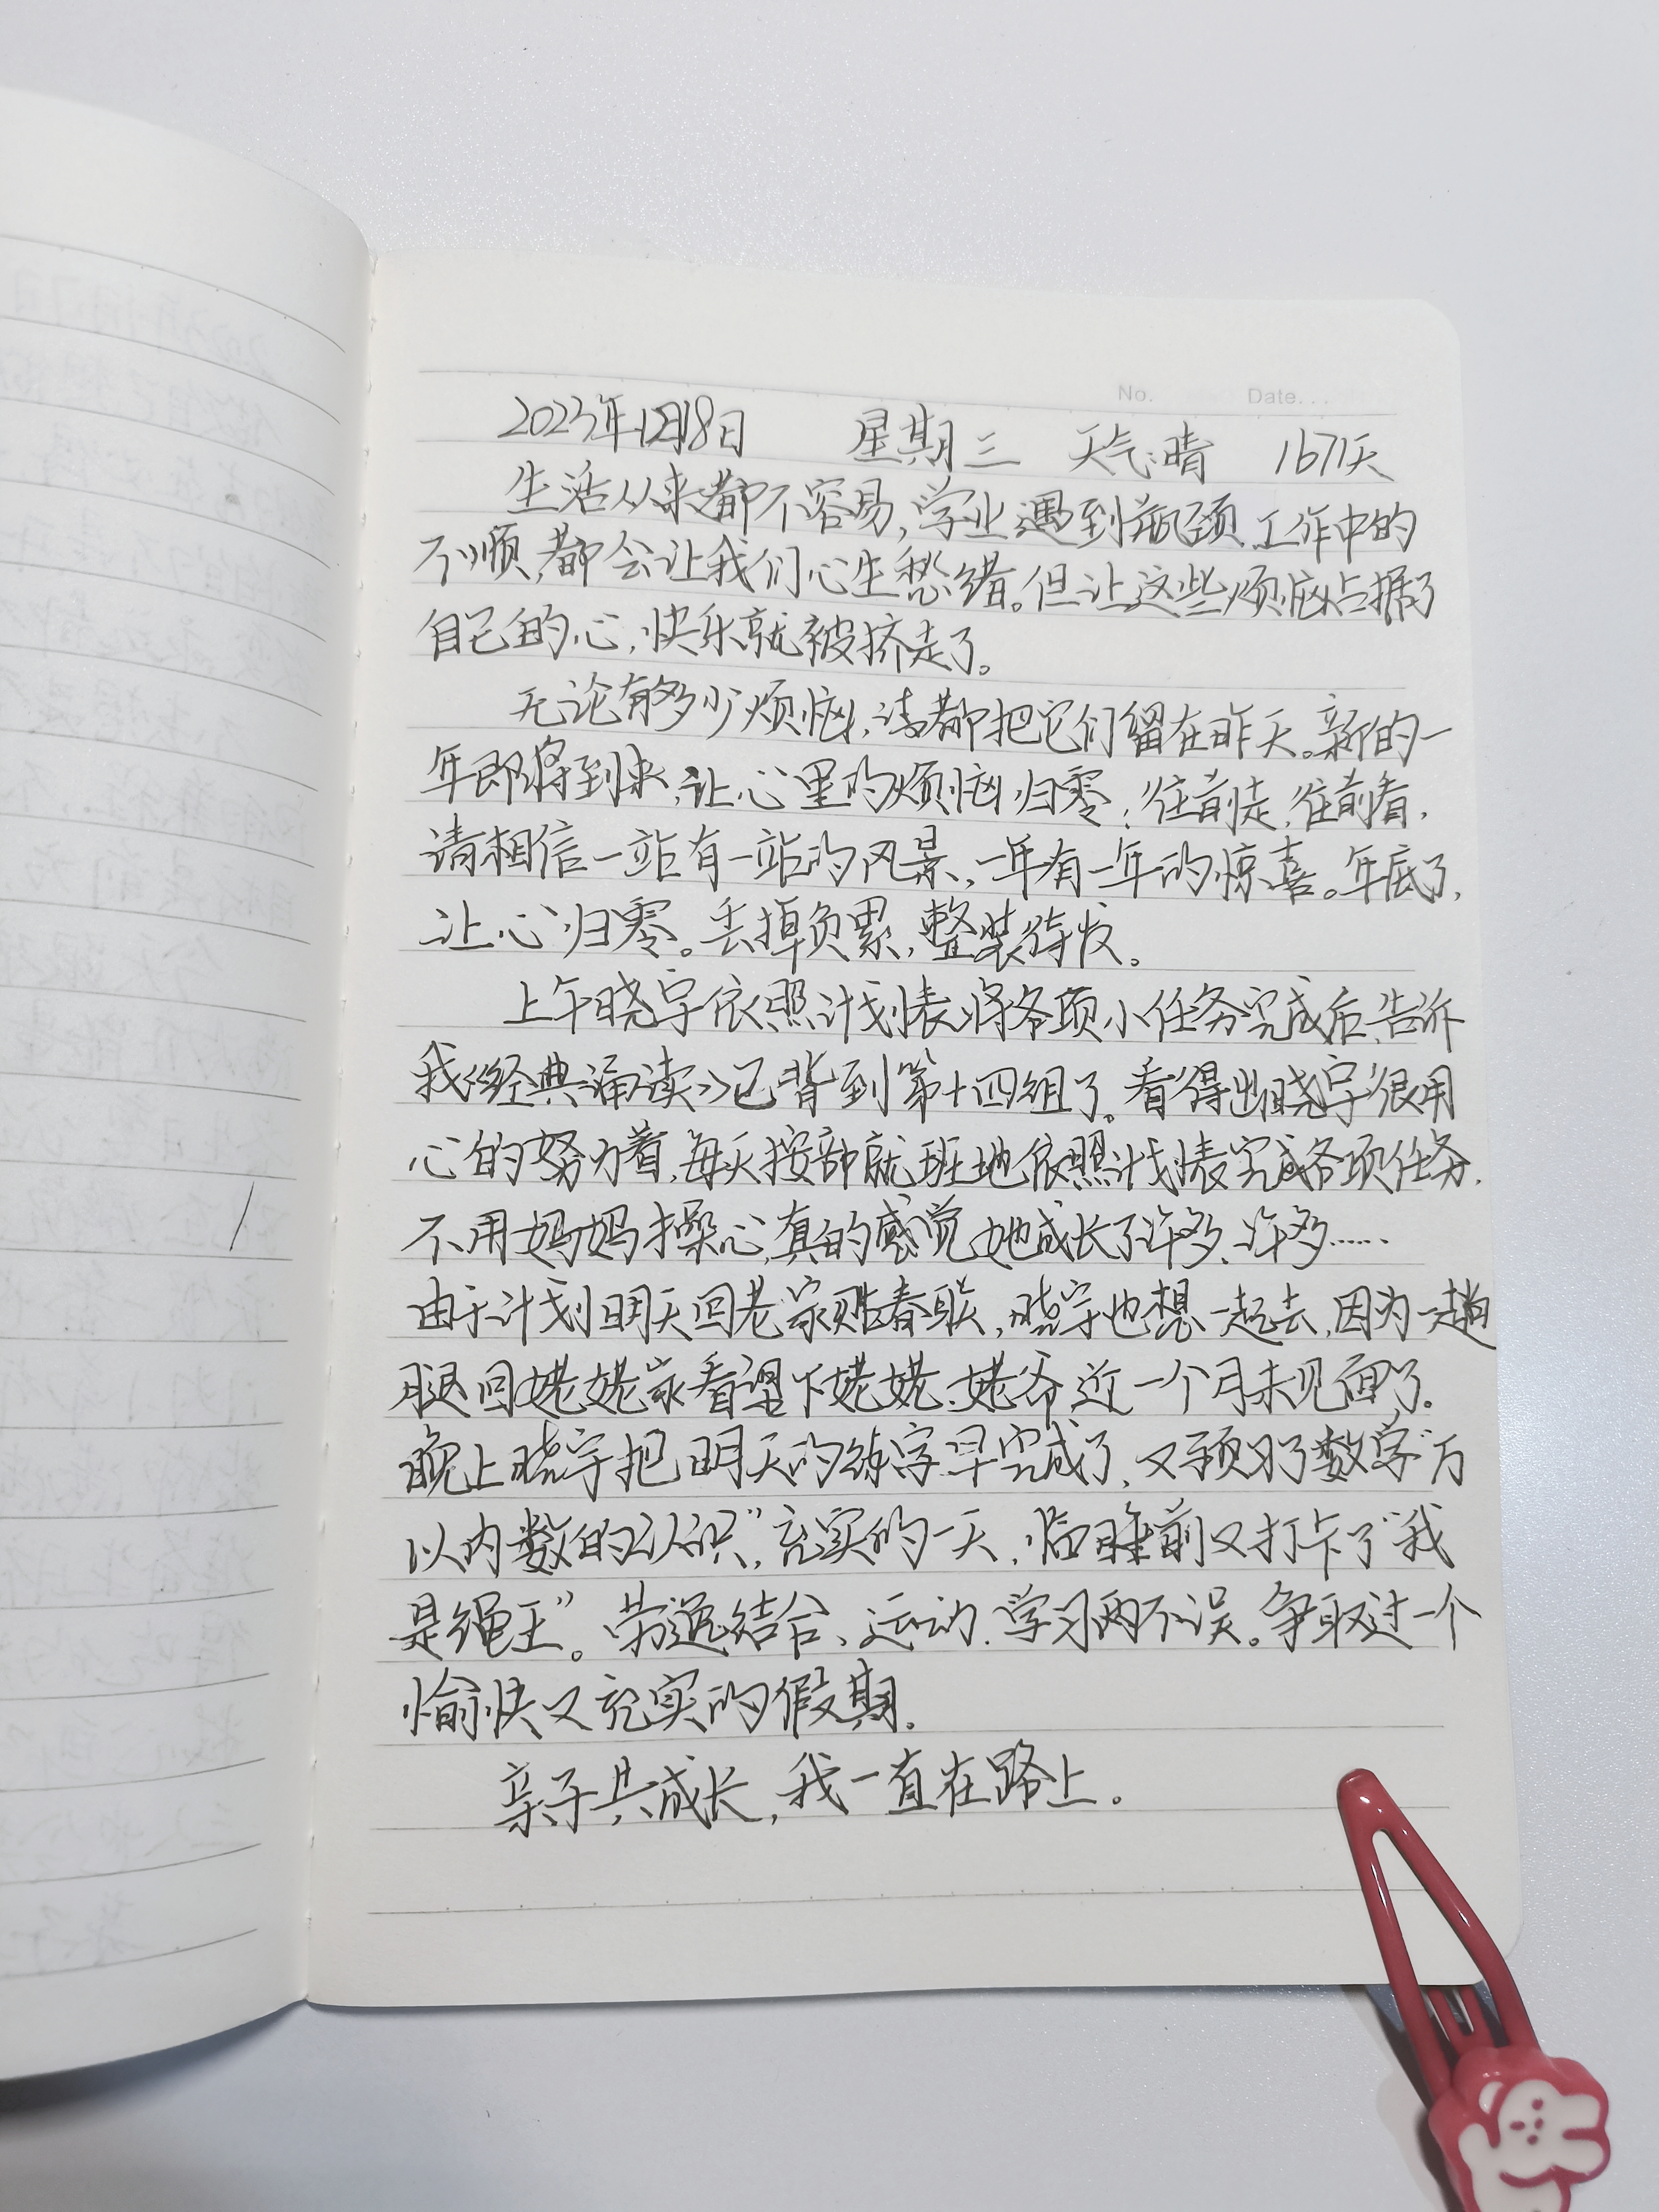 No. Date...
2023年1月18日 星期三 天气:晴 1671天
生活从来都不容易,学业遇到瓶颈,工作中的
不顺,都会让我们心生愁绪。但让这些烦恼占据了
自己的心,快乐就被挤走了。
无论有多少烦恼,请都把它们留在昨天。新的一
年即将到来,让心里的烦恼归零,往前走,往前看,
请相信一站有一站的风景,一年有一年的惊喜。年底了,
让心归零。丢掉负累,整装待发。
上午晓宇依照计划表将各项小任务完成后,告诉
我《经典诵读》已背到第十四组了。看得出晓宇很用
心的努力着,每天按部就班地依照计划表完成各项任务,
不用妈妈操心,真的感觉她成长了许多、许多……
由于计划明天回老家贴春联,晓宇也想一起去,因为一趟
腿回姥姥家看望下姥姥、姥爷近一个月未见面了。
晚上晓宇把明天的练字早完成了,又预习了数学“万
以内数的认识”,充实的一天,临睡前又打卡了“我
是绳王”。劳逸结合、运动、学习两不误。争取过一个
愉快又充实的假期。
亲子共成长,我一直在路上。